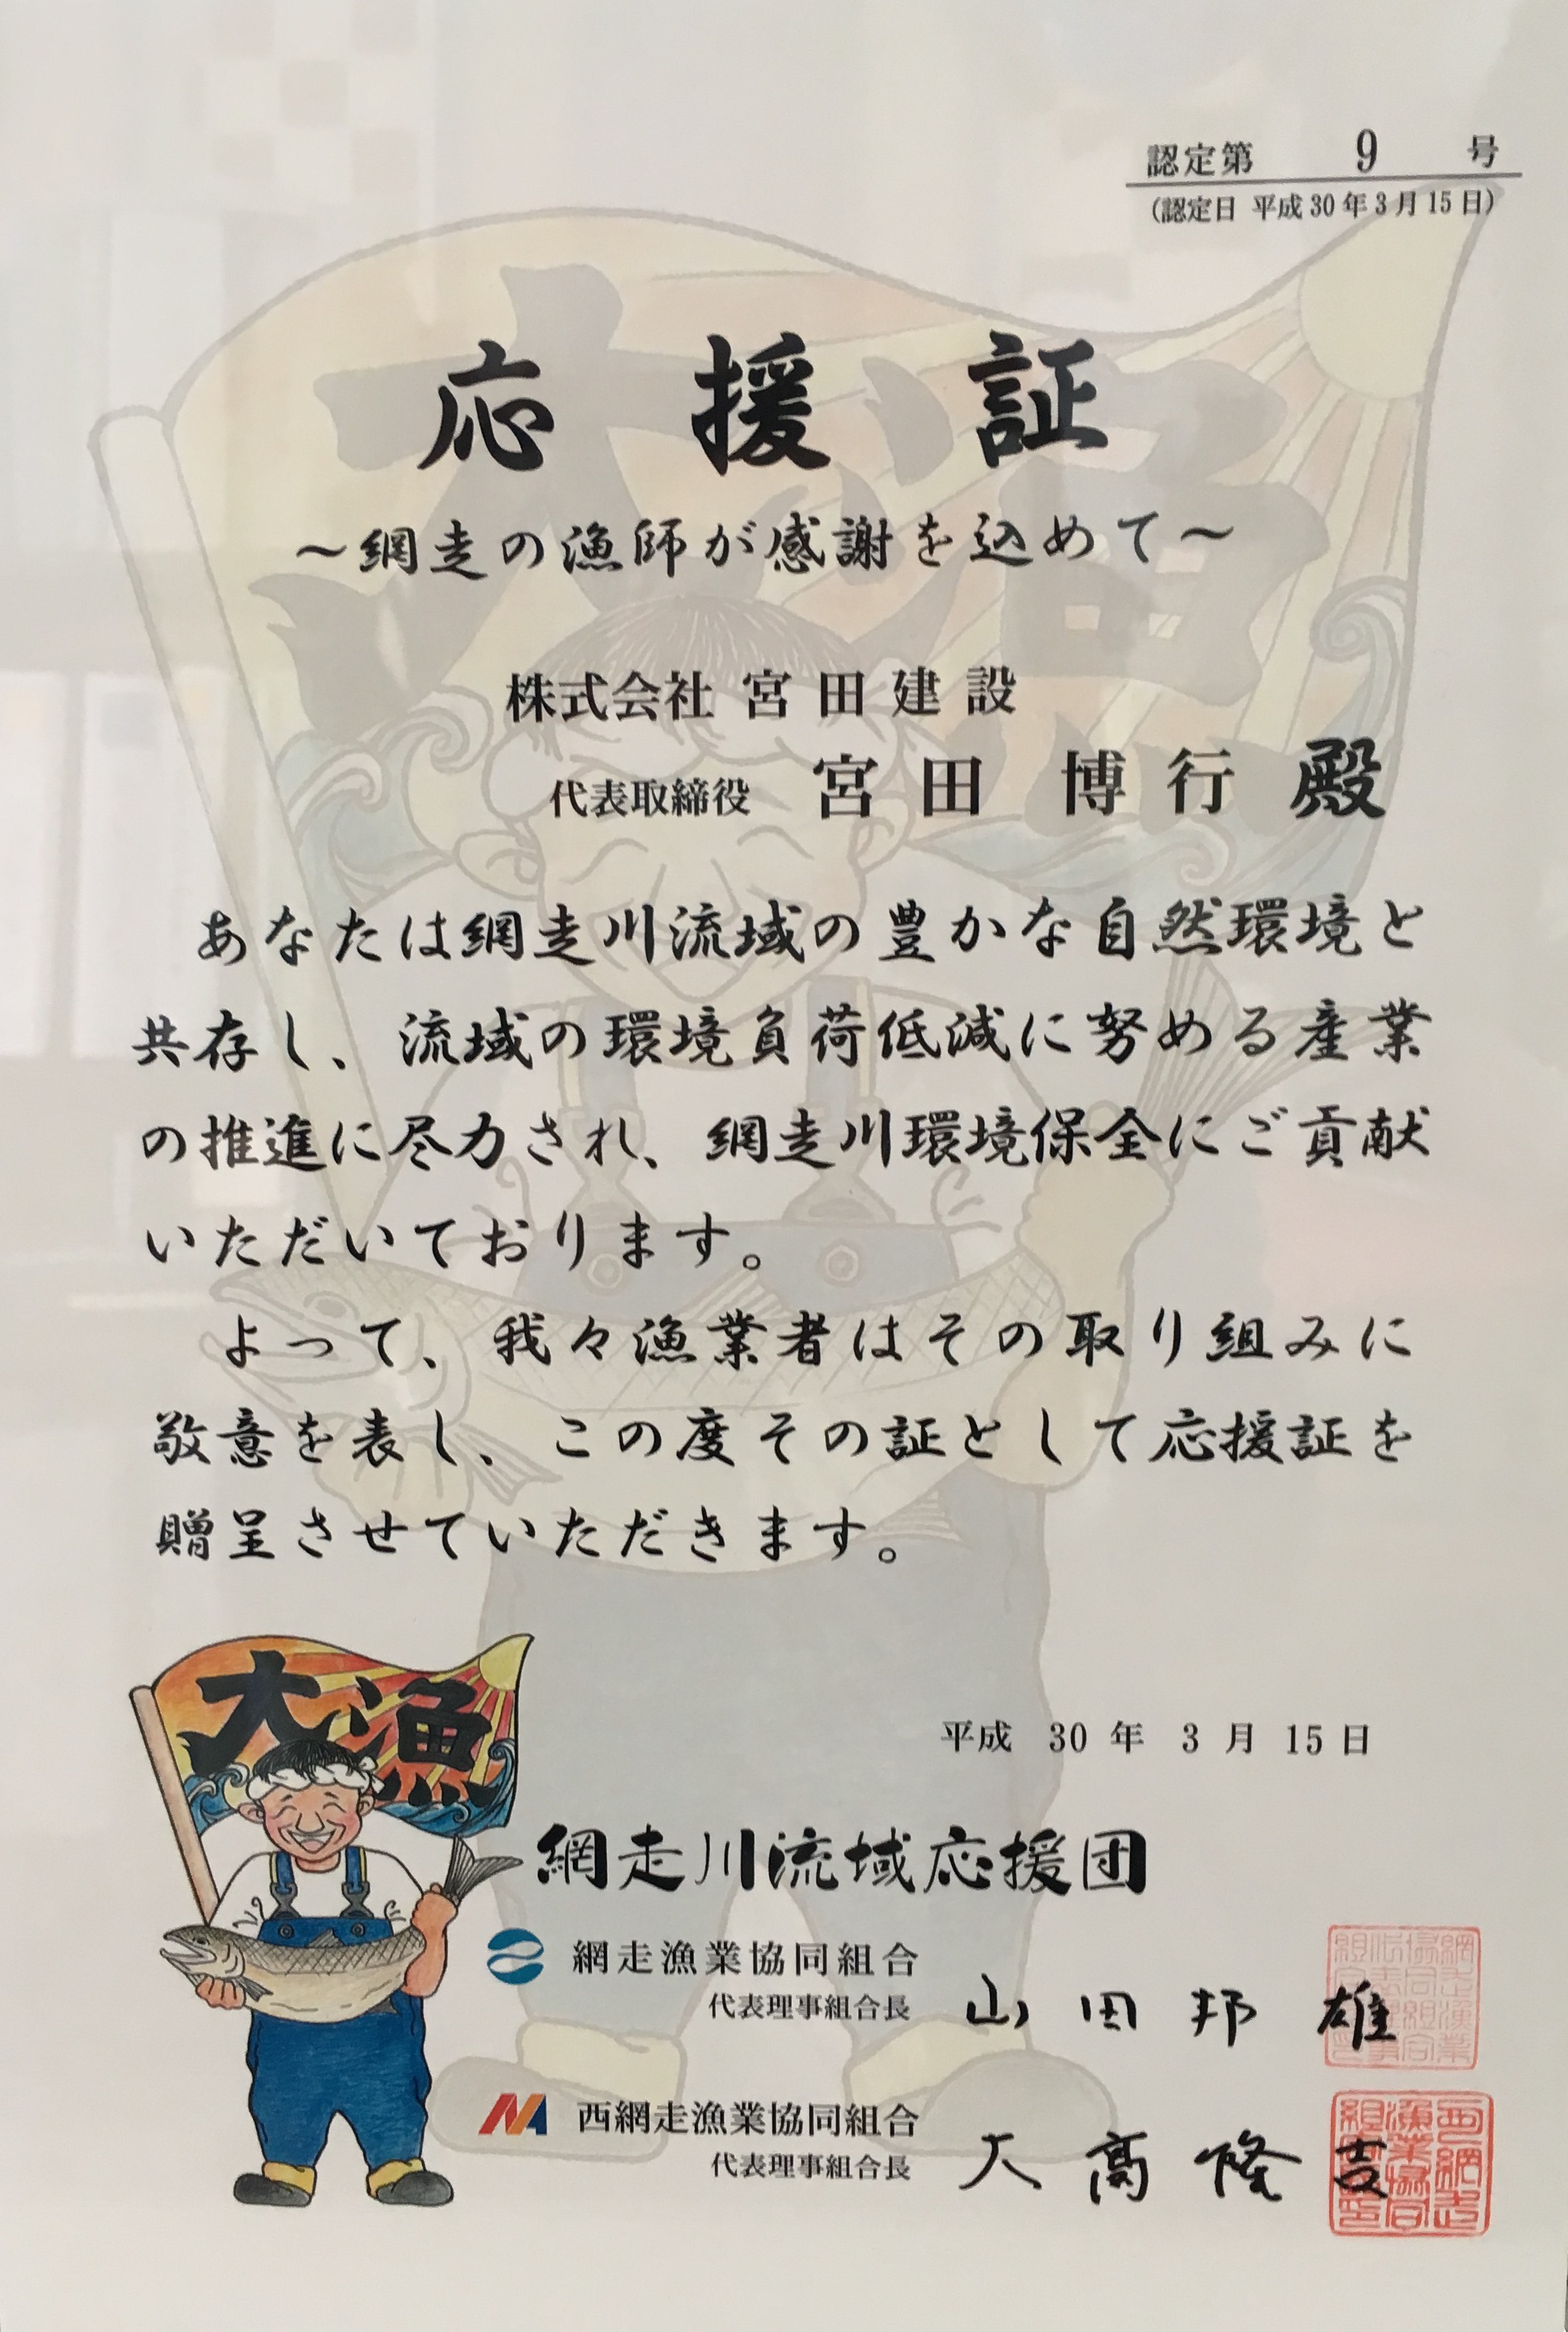 認定第 9 号
(認定日 平成30年3月15日)
応援証
～網走の漁師が感謝を込めて～
株式会社 宮田建設
代表取締役 宮田 博行 殿
あなたは網走川流域の豊かな自然環境と
共存し、流域の環境負荷低減に努める産業
の推進に尽力され、網走川環境保全にご貢献
いただいております。
よって、我々漁業者はその取り組みに
敬意を表し、この度その証として応援証を
贈呈させていただきます。
大漁
平成 30 年 3 月 15 日
網走川流域応援団
網走漁業協同組合
代表理事組合長 山田邦雄
西網走漁業協同組合
代表理事組合長 大高隆吉